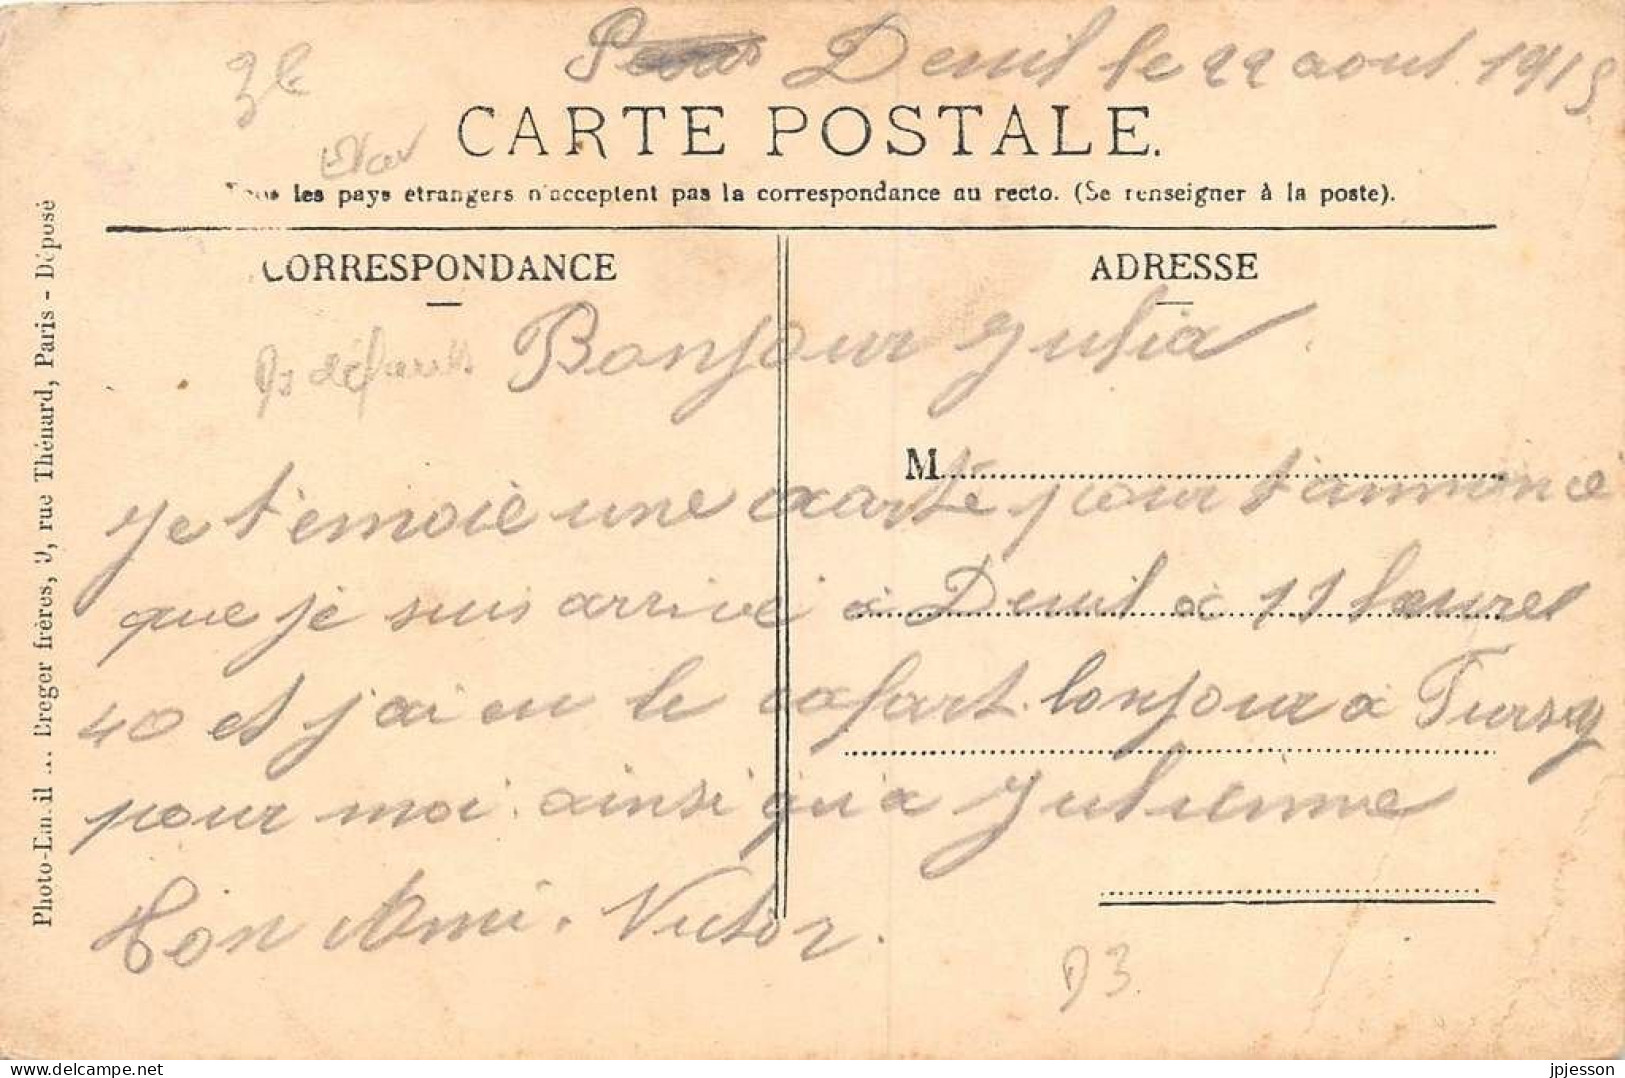 3e
Deuil le 22 aout 1915
CARTE POSTALE.
Tous les pays étrangers n'acceptent pas la correspondance au recto. (Se renseigner à la poste).
CORRESPONDANCE
ADRESSE
Ds défauts
Bonjour Julia
M
Je t'emoie une carte pour t'annonce
que je suis arrivé à Deuil à 11 heures
40 et j'ai eu le cafart. bonjour a Tursy
pour moi. ainsi qu'a Julienne
Ton Ami. Victor.
D3
Photo-Em.il ... Dreger frères, 9, rue Thénard, Paris - Déposé
jpjesson